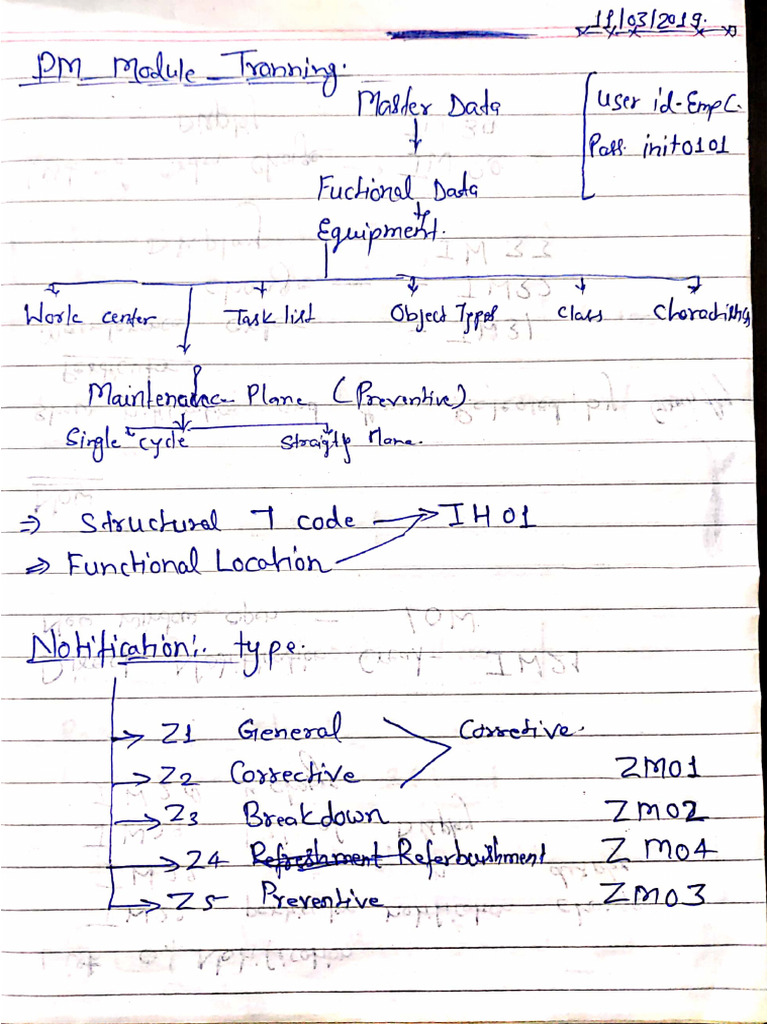 11/03/2019.
PM Module Tranning.
Master Data
User id-EmpC.
Pass. init0101
Fuctional Data
Equipment.
Work center Task list Object Types Class
Maintenance Plane (Preventive)
Single cycle
⇒ Structural T code → IH01
⇒ Functional Location
Notification:. type.
→ Z1 General Corrective.
→ Z2 Corrective ZM01
→ Z3 Breakdown ZM02
→ Z4 Refreshment Referburishment ZM04
→ Z5 Preventive ZM03